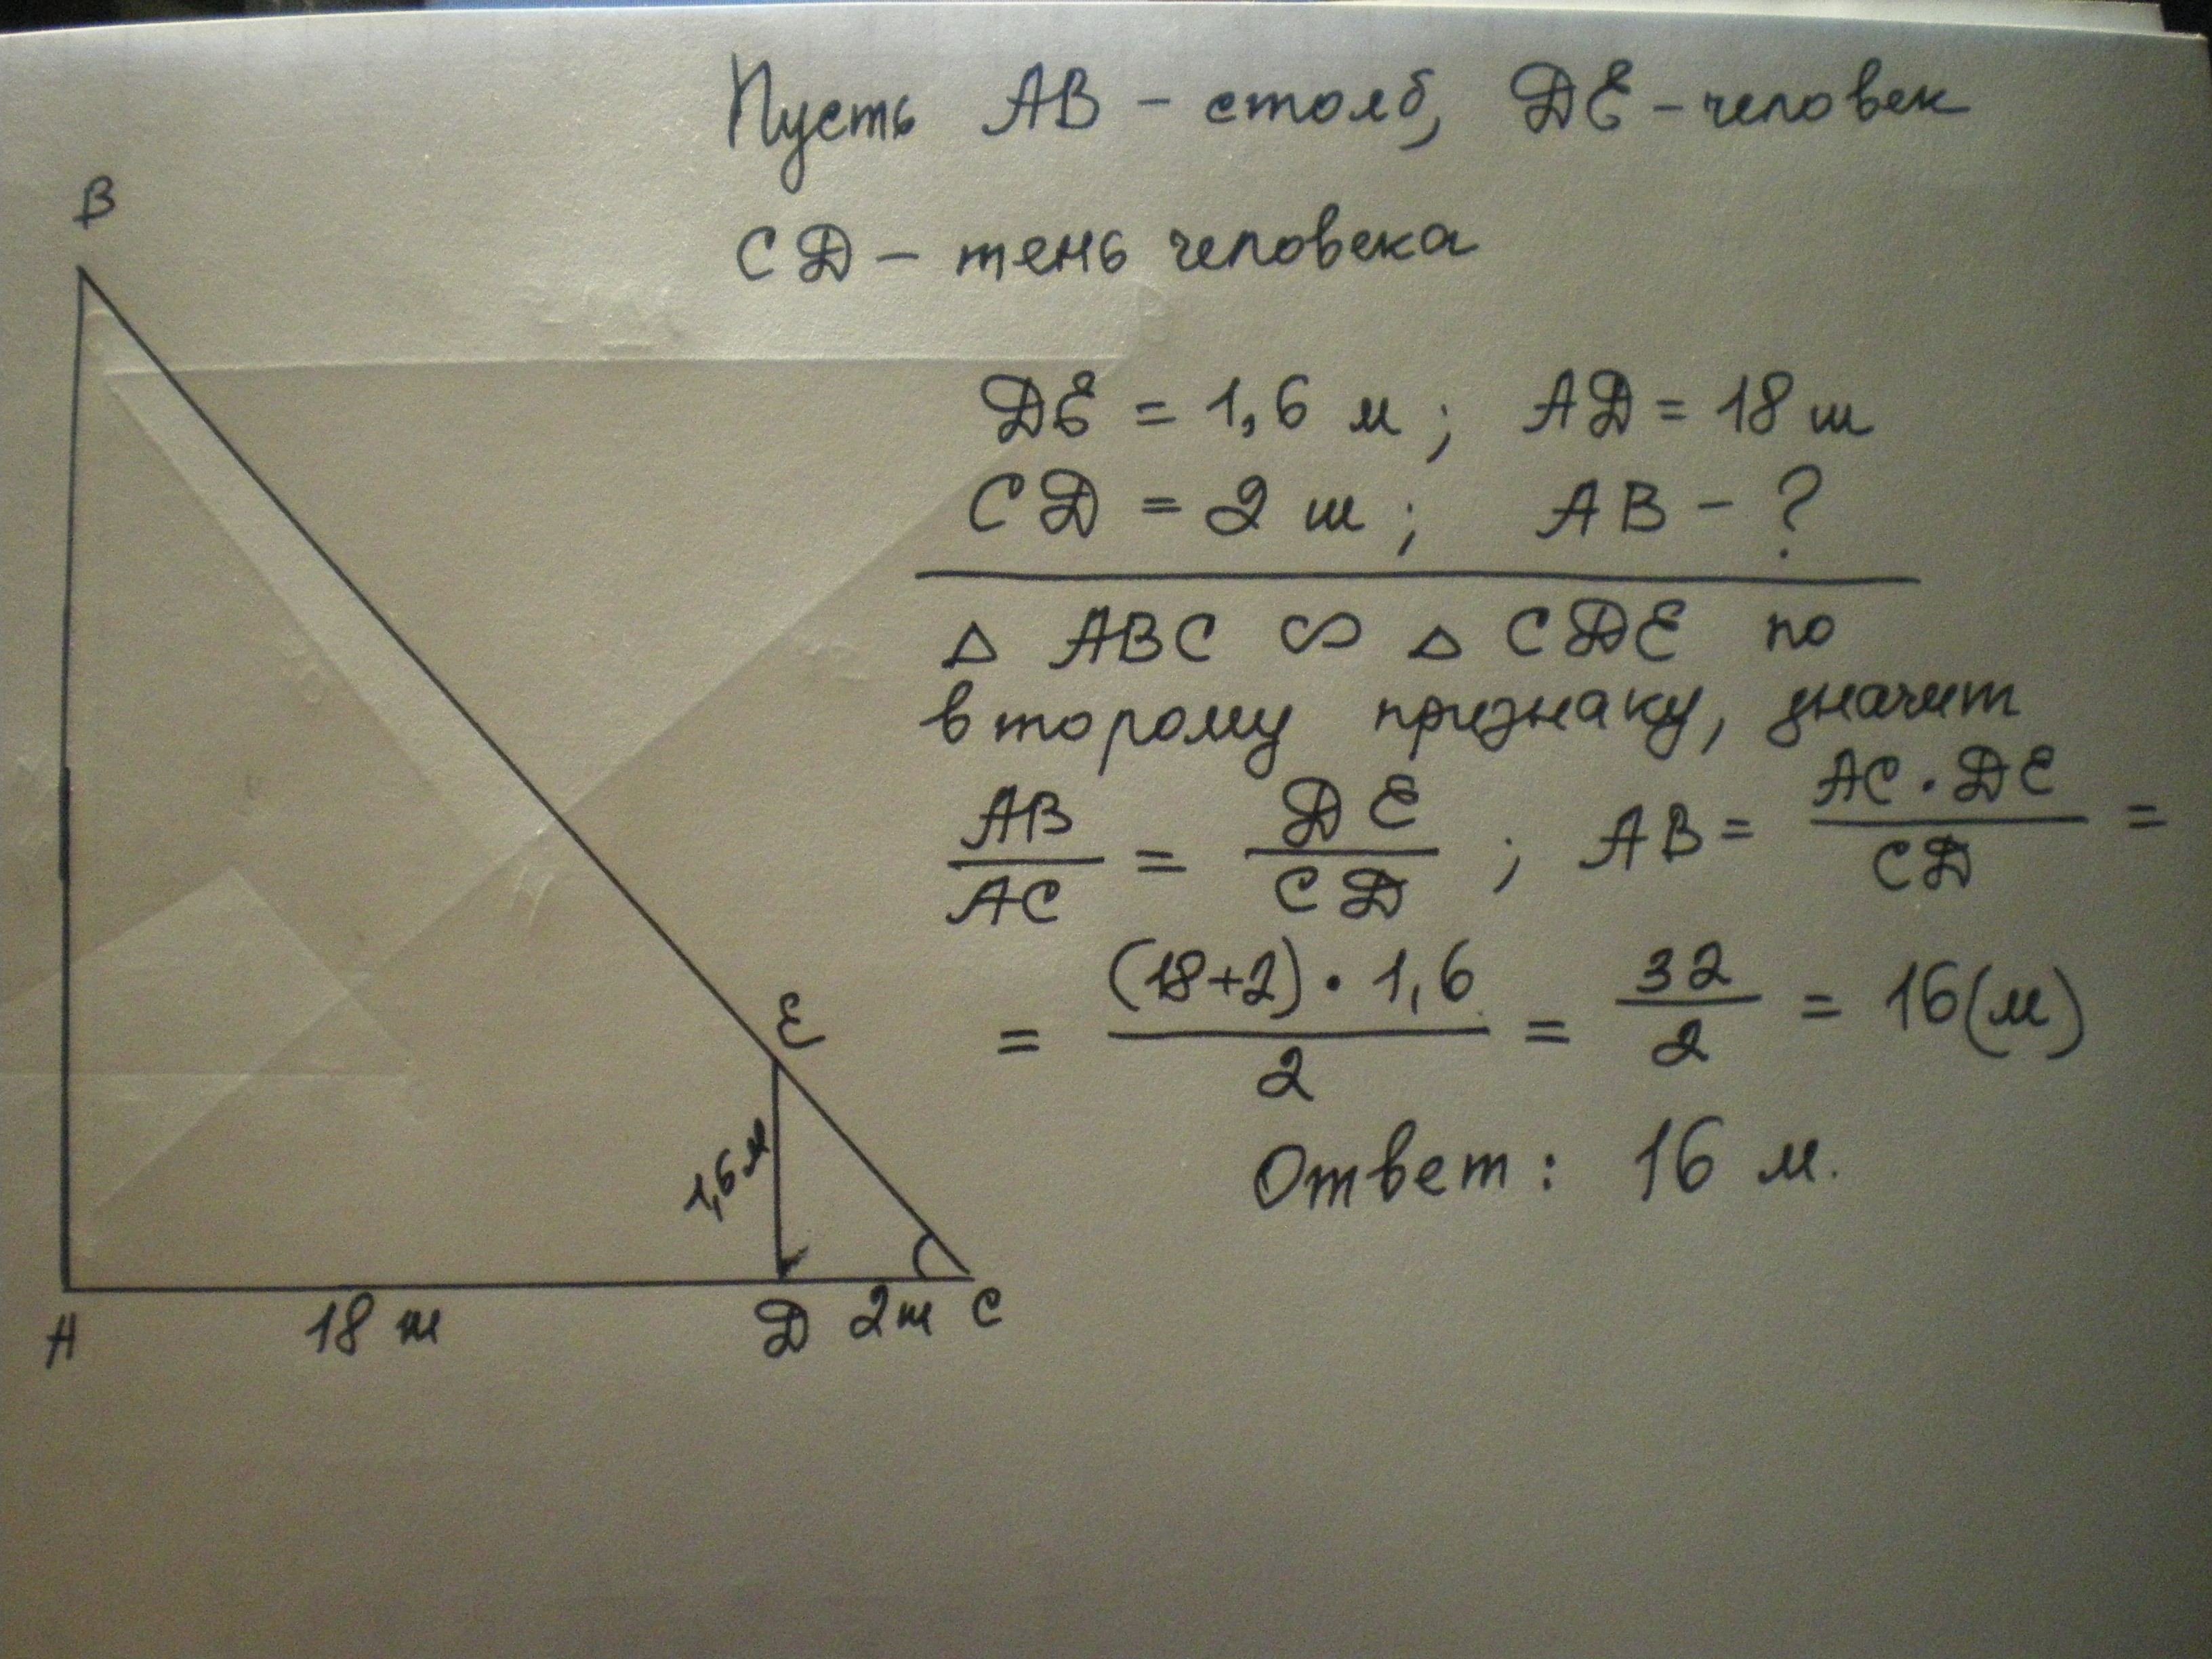 Пусть AB – столб, DE – человек
CD – тень человека
DE = 1,6 м ; AD = 18 ш
CD = 2 ш ; AB – ?
△ ABC ∽ △ CDE по
второму признаку, значит
AB/AC = DE/CD ; AB = AC · DE/CD =
= (18+2) · 1,6/2 = 32/2 = 16(м)
Ответ: 16 м.
B
E
1,6 м
A
18 ш
D
2ш
C